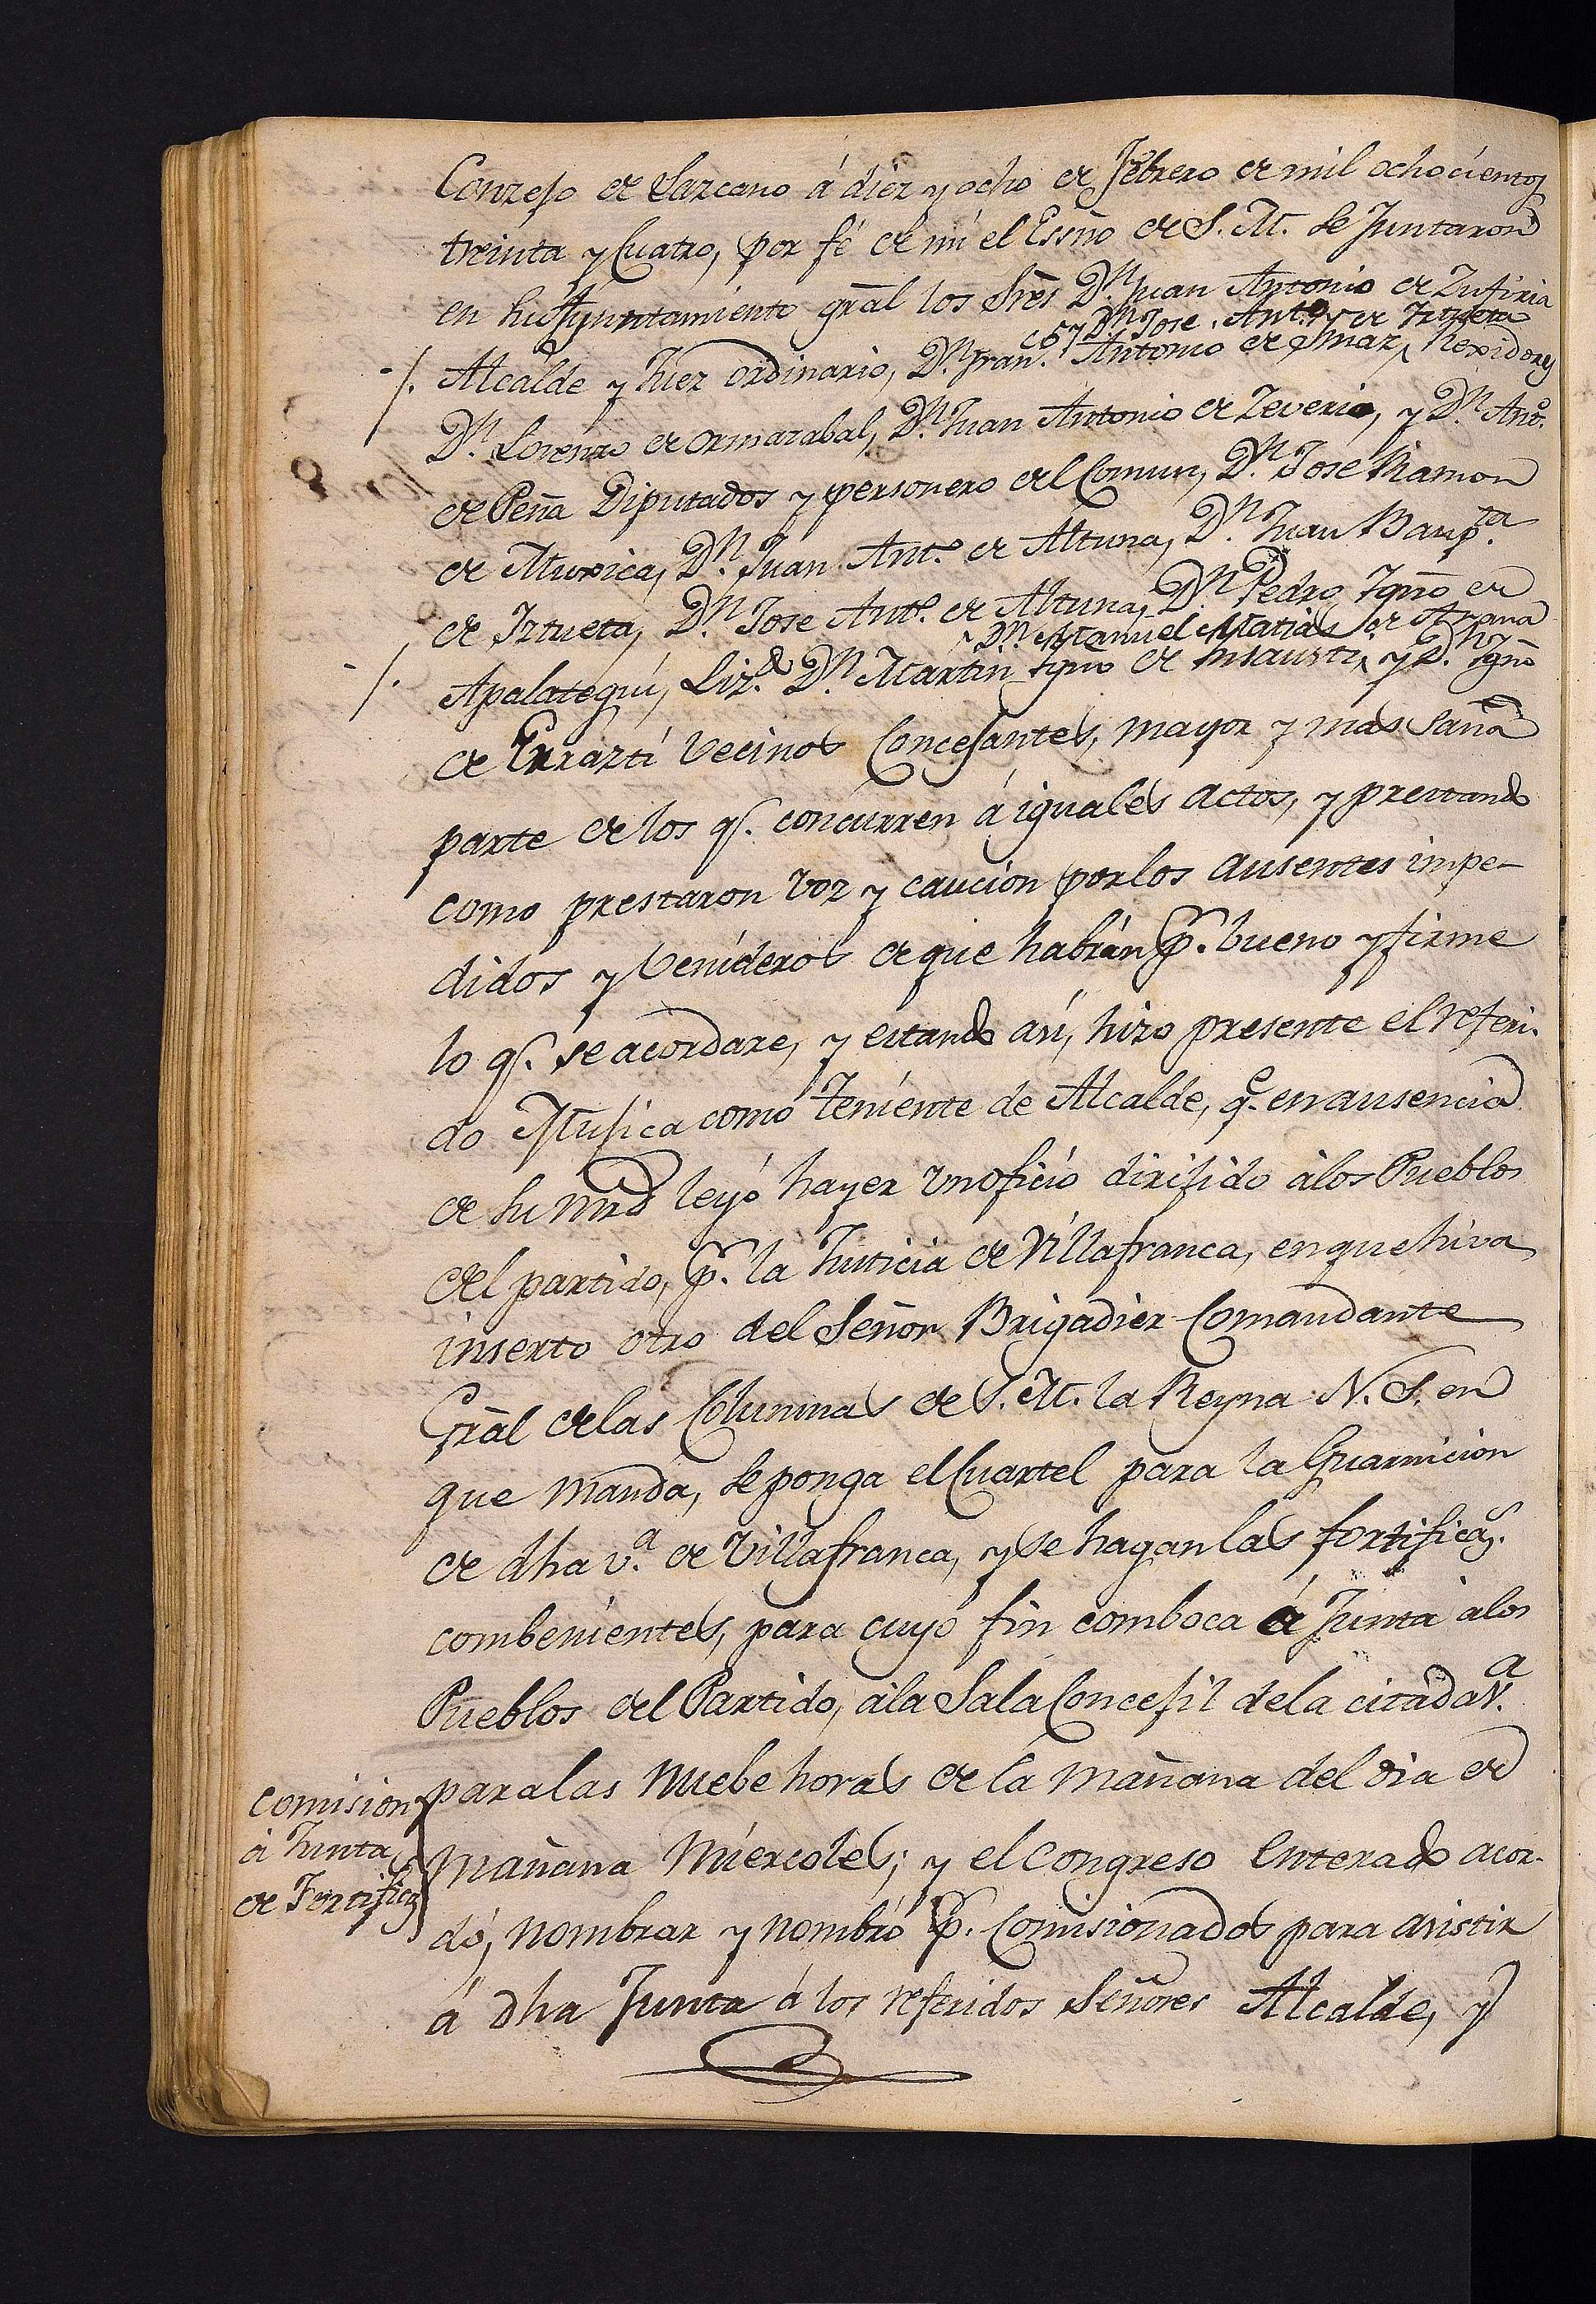 Conzejo de Lazcano á diez y ocho de Febrero de mil ochocientos
treinta y Cuatro, por fé de mi el Essño de S. M. se Juntaron
en su Ayuntamiento grāl los Sr̃es Dⁿ. Juan Antonio de Zufiria
y Dⁿ Jose Antº de Iztueta
Alcalde y Juez ordinario, Dⁿ. Franco. Antonio de Rexidores
Dⁿ. Lorenzo de Ormazabal, Dⁿ. Juan Antonio de Zeverio, y Dⁿ. Antº.
de Peña Diputados y personero del Comun, Dⁿ. Jose Ramon
de Muxica, Dⁿ. Juan Antº. de Altuna, Dⁿ. Juan Baupta.
de Iztueta, Dⁿ. Jose Antº. de Altuna, Dⁿ Pedro Ygño de
Dⁿ. Manuel Matias de Arana
Apalategui, Lizdo. Dⁿ. Martin Ygño de Insausti, y Dⁿ. Ygño
de Errazti Vecinos Concejantes, mayor y mas sana
parte de los q̃. concurren á iguales actos, y prestando
como prestaron voz y caución por los ausentes impe-
didos y Venideros de que habrán pr. bueno y firme
lo q̃. se acordare, y estando así, hizo presente el referi-
do Mujica como Teniente de Alcalde, qe. en ausencia
de su mrd leyó hayer un oficio dirijido à los Pueblos
del partido, pr. la Justicia de Villafranca, en que hiva
inserto otro del Señor Brigadier Comandante
Grāl de las Columnas de S. M. la Reyna N. S. en
que manda, se ponga el Cuartel para la Guarnicion
de dha vª. de Villafranca, y se hagan las fortificas.
combenientes, para cuyo fin comboca á Junta à los
Pueblos del Partido, à la Sala Concejil de la citada Vª.
para las nuebe horas de la mañana del dia de
Comision
á Junta
de Fortificas
mañana Miercoles; y el Congreso enterado acor-
dó, nombrar y nombró pr. Comisionados para asistir
á dha Junta á los referidos Señores Alcalde, y